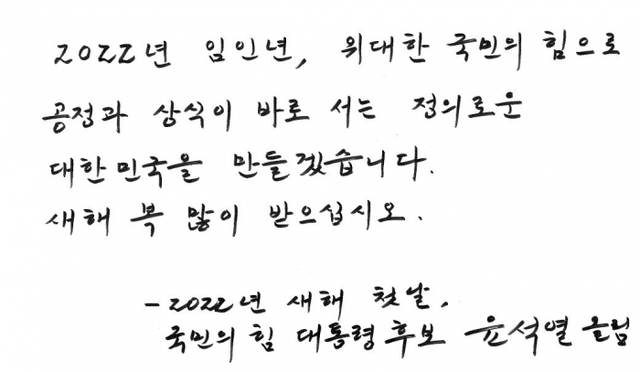 2022년 임인년, 위대한 국민의 힘으로
공정과 상식이 바로 서는 정의로운
대한민국을 만들겠습니다.
새해 복 많이 받으십시오.
-2022년 새해 첫날.
국민의힘 대통령후보 윤석열 올림